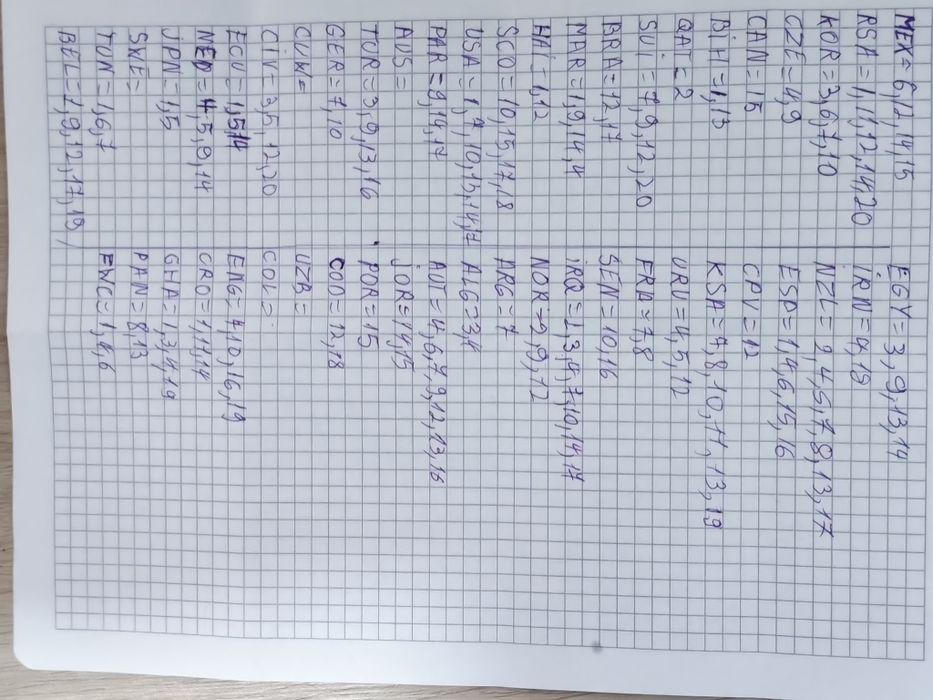 MEX = 6, 12, 14, 15
RSA = 1, 11, 12, 14, 20
KOR = 3, 6, 7, 10
CZE = 4, 9
CAN = 15
BiH = 1, 13
QAT = 2
SUi = 7, 9, 12, 20
BRA = 12, 17
MAR = 1, 9, 14, 4
HAi = 1, 12
SCO = 10, 15, 17, 18
USA = 1, 7, 10, 13, 14, 17
PAR = 9, 14, 17
AUS =
TUR = 3, 9, 13, 16
GER = 7, 10
CUW =
CiV = 3, 5, 12, 20
ECU = 1, 5, 14
NED = 4, 5, 9, 14
JPN = 1, 5
SWE =
TUN = 1, 6, 7
BEL = 1, 9, 12, 17, 19
EGY = 3, 9, 13, 14
iRN = 4, 19
NZL = 2, 4, 5, 7, 8, 13, 17
ESP = 1, 4, 6, 15, 16
CPV = 12
KSA = 7, 8, 10, 11, 13, 19
URU = 4, 5, 12
FRA = 7, 8
SEN = 10, 16
iRQ = 1, 3, 4, 7, 10, 14, 17
NOR = 2, 9, 12
ARG = 7
ALG = 3, 4
AUT = 4, 6, 7, 9, 12, 13, 16
JOR = 14, 15
POR = 15
COD = 12, 18
UZB =
COL =
ENG = 4, 10, 16, 19
CRO = 1, 11, 14
GHA = 1, 3, 4, 19
PAN = 8, 13